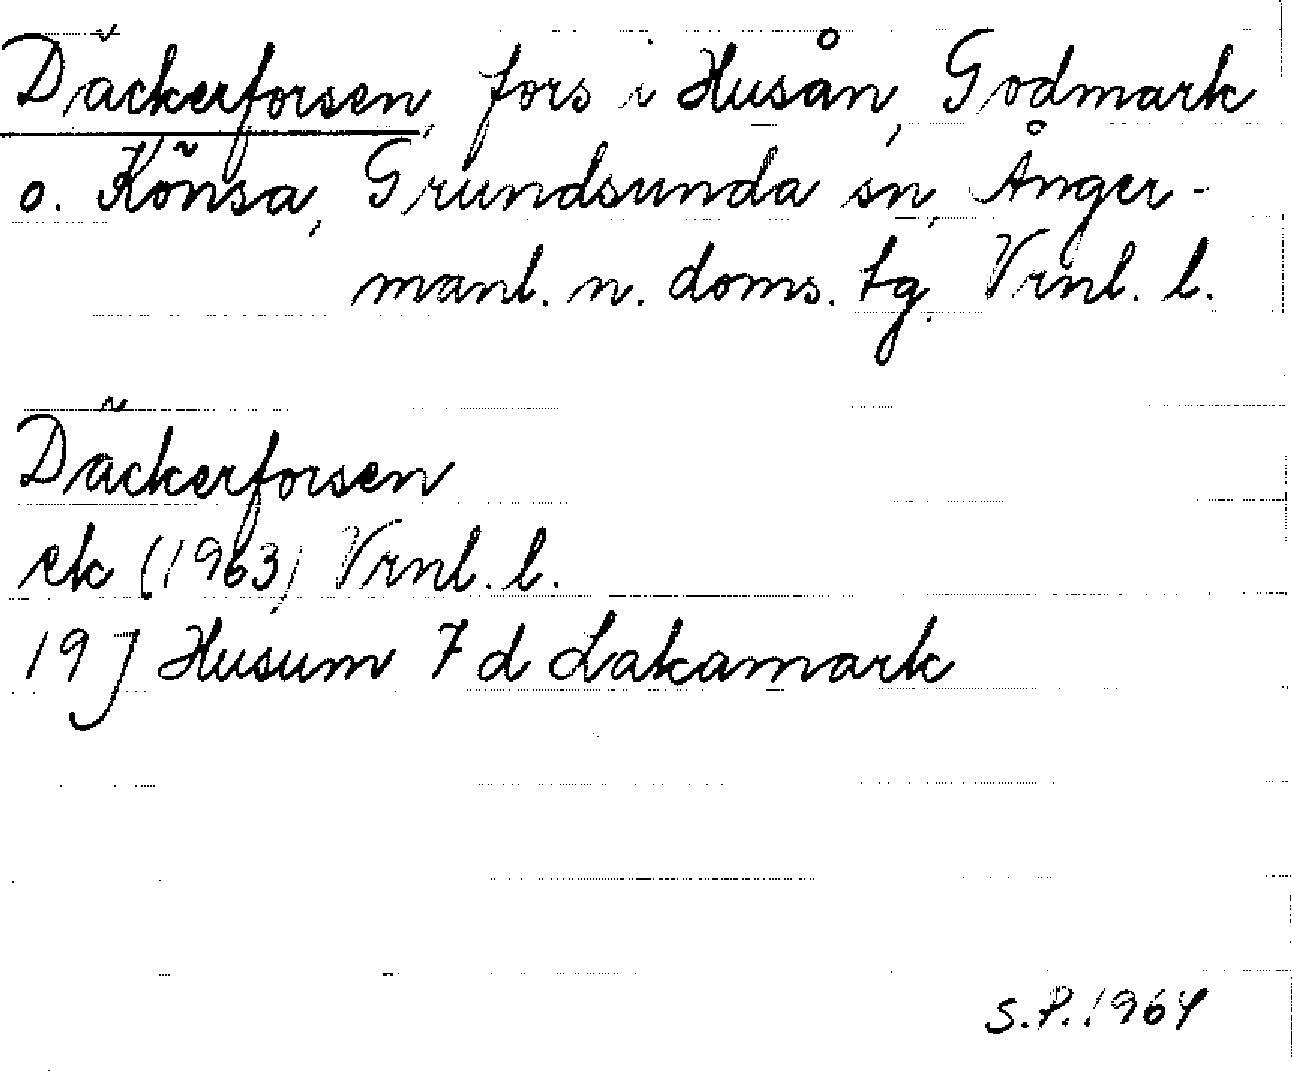 Däckerforsen, fors i Husån, Godmark
o. Könsa, Grundsunda sn, Ånger-
manl. n. doms. tg. Vrnl. l.
Däckerforsen
ek (1963) Vrnl. l.
19 J Husum 7 d Lakamark
S.P. 1964